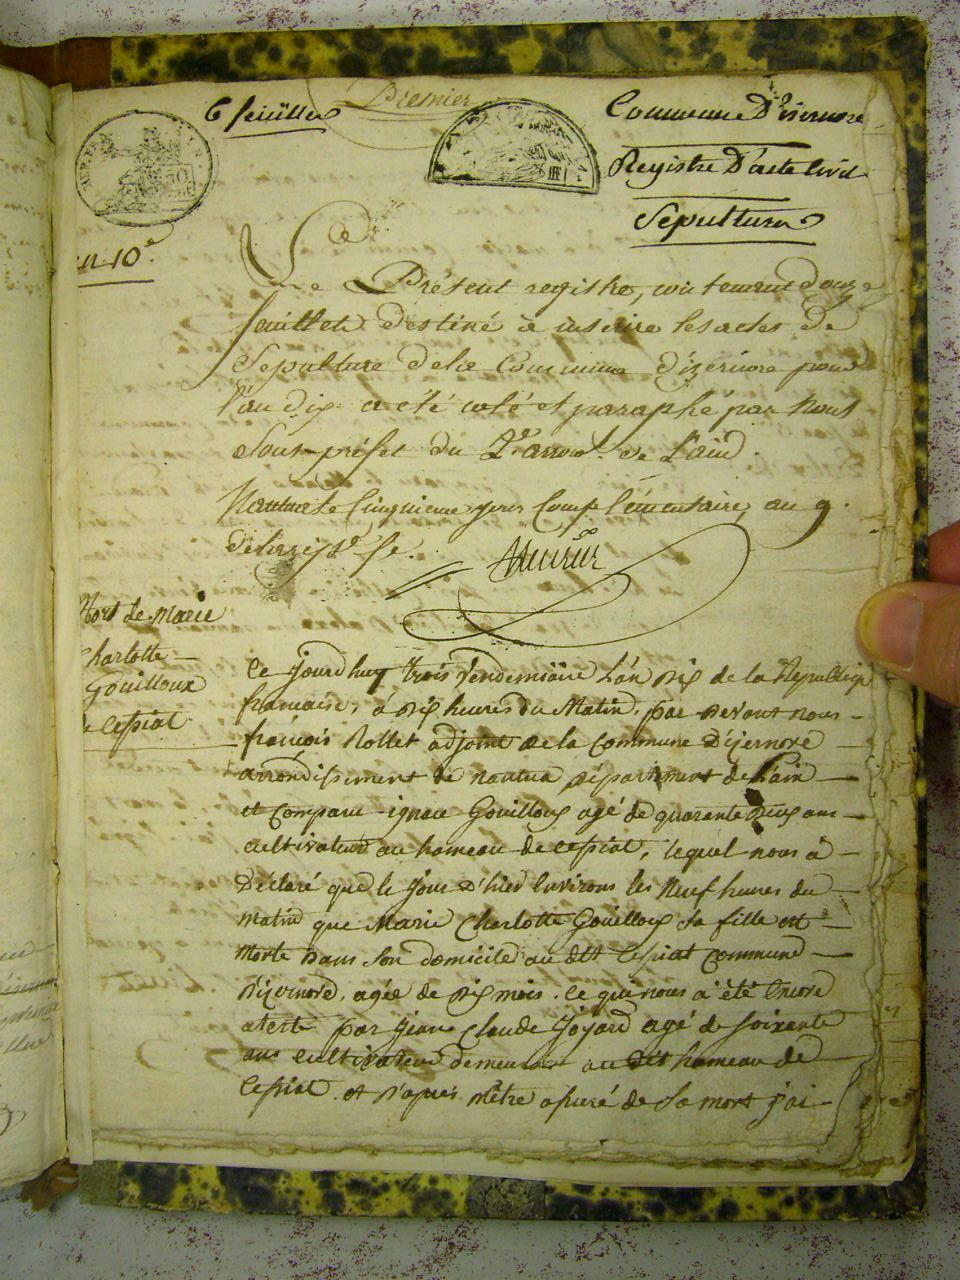 6 feuilles
Premier
Commune D'izernore
Registre D'acte Civil
Sepultures
an 10e
Le Présent registre, contenant douze
feuillets destiné à inscrire les actes de
Sepulture de la Commune d'izernore pour
l'an dix a été coté et paraphé par Nous
Sous-préfet du 2e arrond. de L'ain.
Nantua le Cinquieme jour Complémentaire, an 9.
de la rep. fse.
Mort de Marie
Charlotte
Gouilloux
de Cessiat
Ce jourd'huy trois Vendemiaire L'an Dix de la Republique
francaise, a Dix heures du Matin, par Devant nous
françois Rollet adjoint de la Commune D'izernore
arrondissement de nantua Département de Lain
est Comparu ignace Gouilloux agé de quarante Deux ans
cultivateur au hameau de Cessiat, lequel nous à
Déclaré que le Jour D'hier Environs les Neuf heures du
Matin que Marie Charlotte Gouilloux sa fille est
Morte Dans son domicile au dit Cessiat Commune
D'izernore, agée de Dix mois. Ce qui nous à été Encore
atesté par Jean Claude Joyard agé de Soixante
ans cultivateur demeurant au dit hameau de
Cessiat. et D'après m'être assuré de Sa mort j'ai